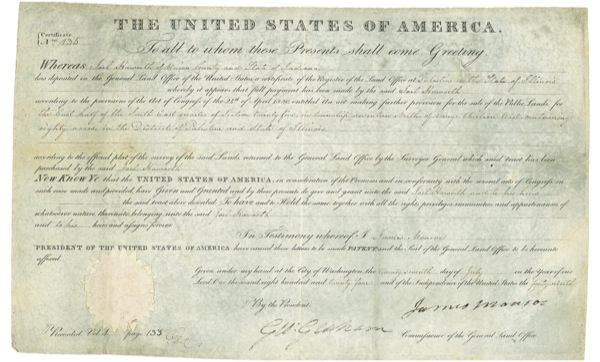 THE UNITED STATES OF AMERICA.
Certificate
No. 135
To all to whom these Presents shall come Greeting.
Whereas Haworth of County and State of Indiana
has deposited in the General Land Office of the United States, a certificate of the Register of the Land Office at Palestine in the State of Illinois
whereby it appears that full payment has been made by the said Haworth
according to the provision of the Act of Congress of the 24th of April 1820, entitled An act making further provision for the sale of the Public Lands: for
The East half of the South East quarter of Section twenty five, in township seventeen North of range thirteen West containing
eighty acres in the District of Palestine and State of Illinois
according to the official plat of the survey of the said Lands returned to the General Land Office by the Surveyor General which said tract has been
purchased by the said Haworth
NOW KNOW YE that THE UNITED STATES OF AMERICA, in consideration of the Premises and in conformity with the several acts of Congress in
such case made and provided, have Given and Granted and by these presents do give and grant unto the said Haworth and to his heirs
the said tract above described: To have and to Hold the same together with all the rights, privileges immunities and appurtenances of
whatsoever nature thereunto belonging, unto the said Haworth
and to his heirs and assigns forever.
In Testimony whereof I James Monroe
PRESIDENT OF THE UNITED STATES OF AMERICA have caused these letters to be made PATENT and the Seal of the General Land Office to be hereunto
affixed.
Given under my hand at the City of Washington the twenty ninth day of July in the Year of our
Lord One thousand eight hundred and twenty four and of the Independence of the United States the forty ninth
By the President
James Monroe
Recorded Vol. 1 Page 135
Geo Graham
Commissioner of the General Land Office.